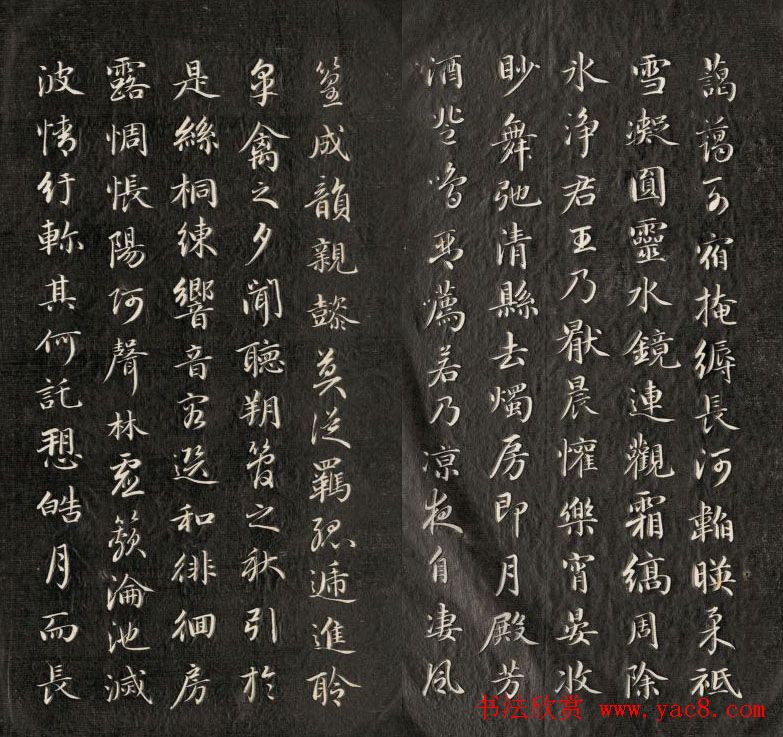 藹藹列宿掩縟長河韜暎柔祗
雪凝圓靈水鏡連觀霜縞周除
氷淨君王乃猒晨懽樂宵晏收
眇舞弛清縣去燭房即月殿芳
酒登鳴琴薦若乃凉夜自凄風
篁成韻親懿莫從羈孤遞進聆
皐禽之夕聞聽朔管之秋引於
是絲桐練響音容選和徘徊房
露惆悵陽阿聲林虛籟淪池滅
波情紆軫其何託愬皓月而長
书法欣赏 www.yac8.com